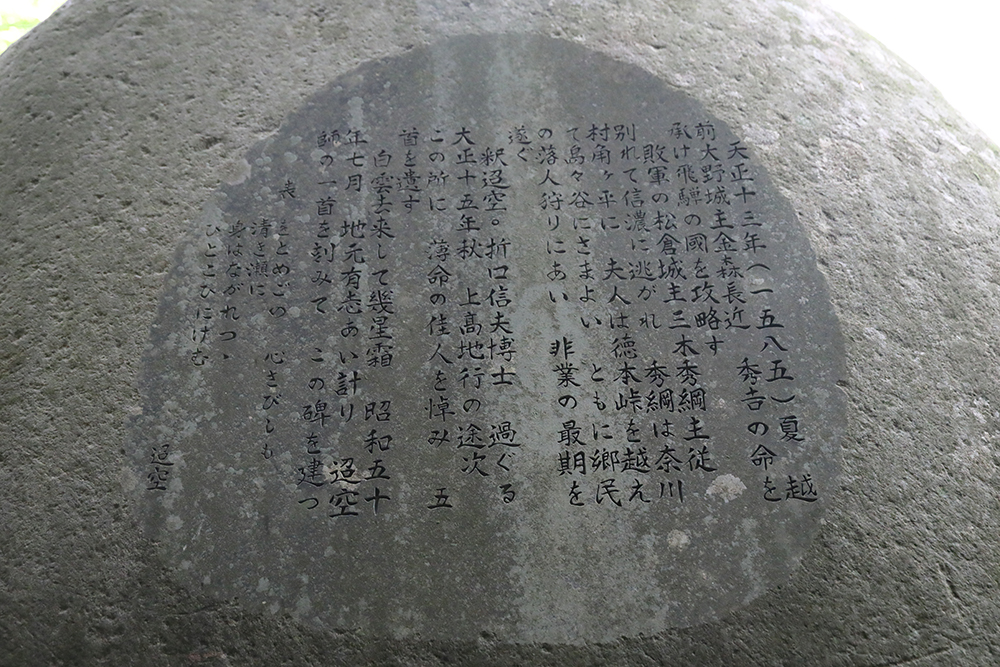 天正十三年(一五八五)夏 越
前大野城主金森長近 秀吉の命を
承け飛騨の國を攻略す
敗軍の松倉城主三木秀綱主従
別れて信濃に逃がれ 秀綱は奈川
村角ヶ平に 夫人は徳本峠を越え
て島々谷にさまよい ともに郷民
の落人狩りにあい 非業の最期を
遂ぐ
釈迢空。折口信夫博士 過ぐる
大正十五年秋 上高地行の途次
この所に 薄命の佳人を悼み 五
首を遺す
白雲去来して幾星霜 昭和五十
年七月 地元有志あい計り 迢空
師の一首を刻みて この碑を建つ
をとめごの 心さびしも
清き瀬に
身はながれつゝ
ひとこひにけむ
迢空